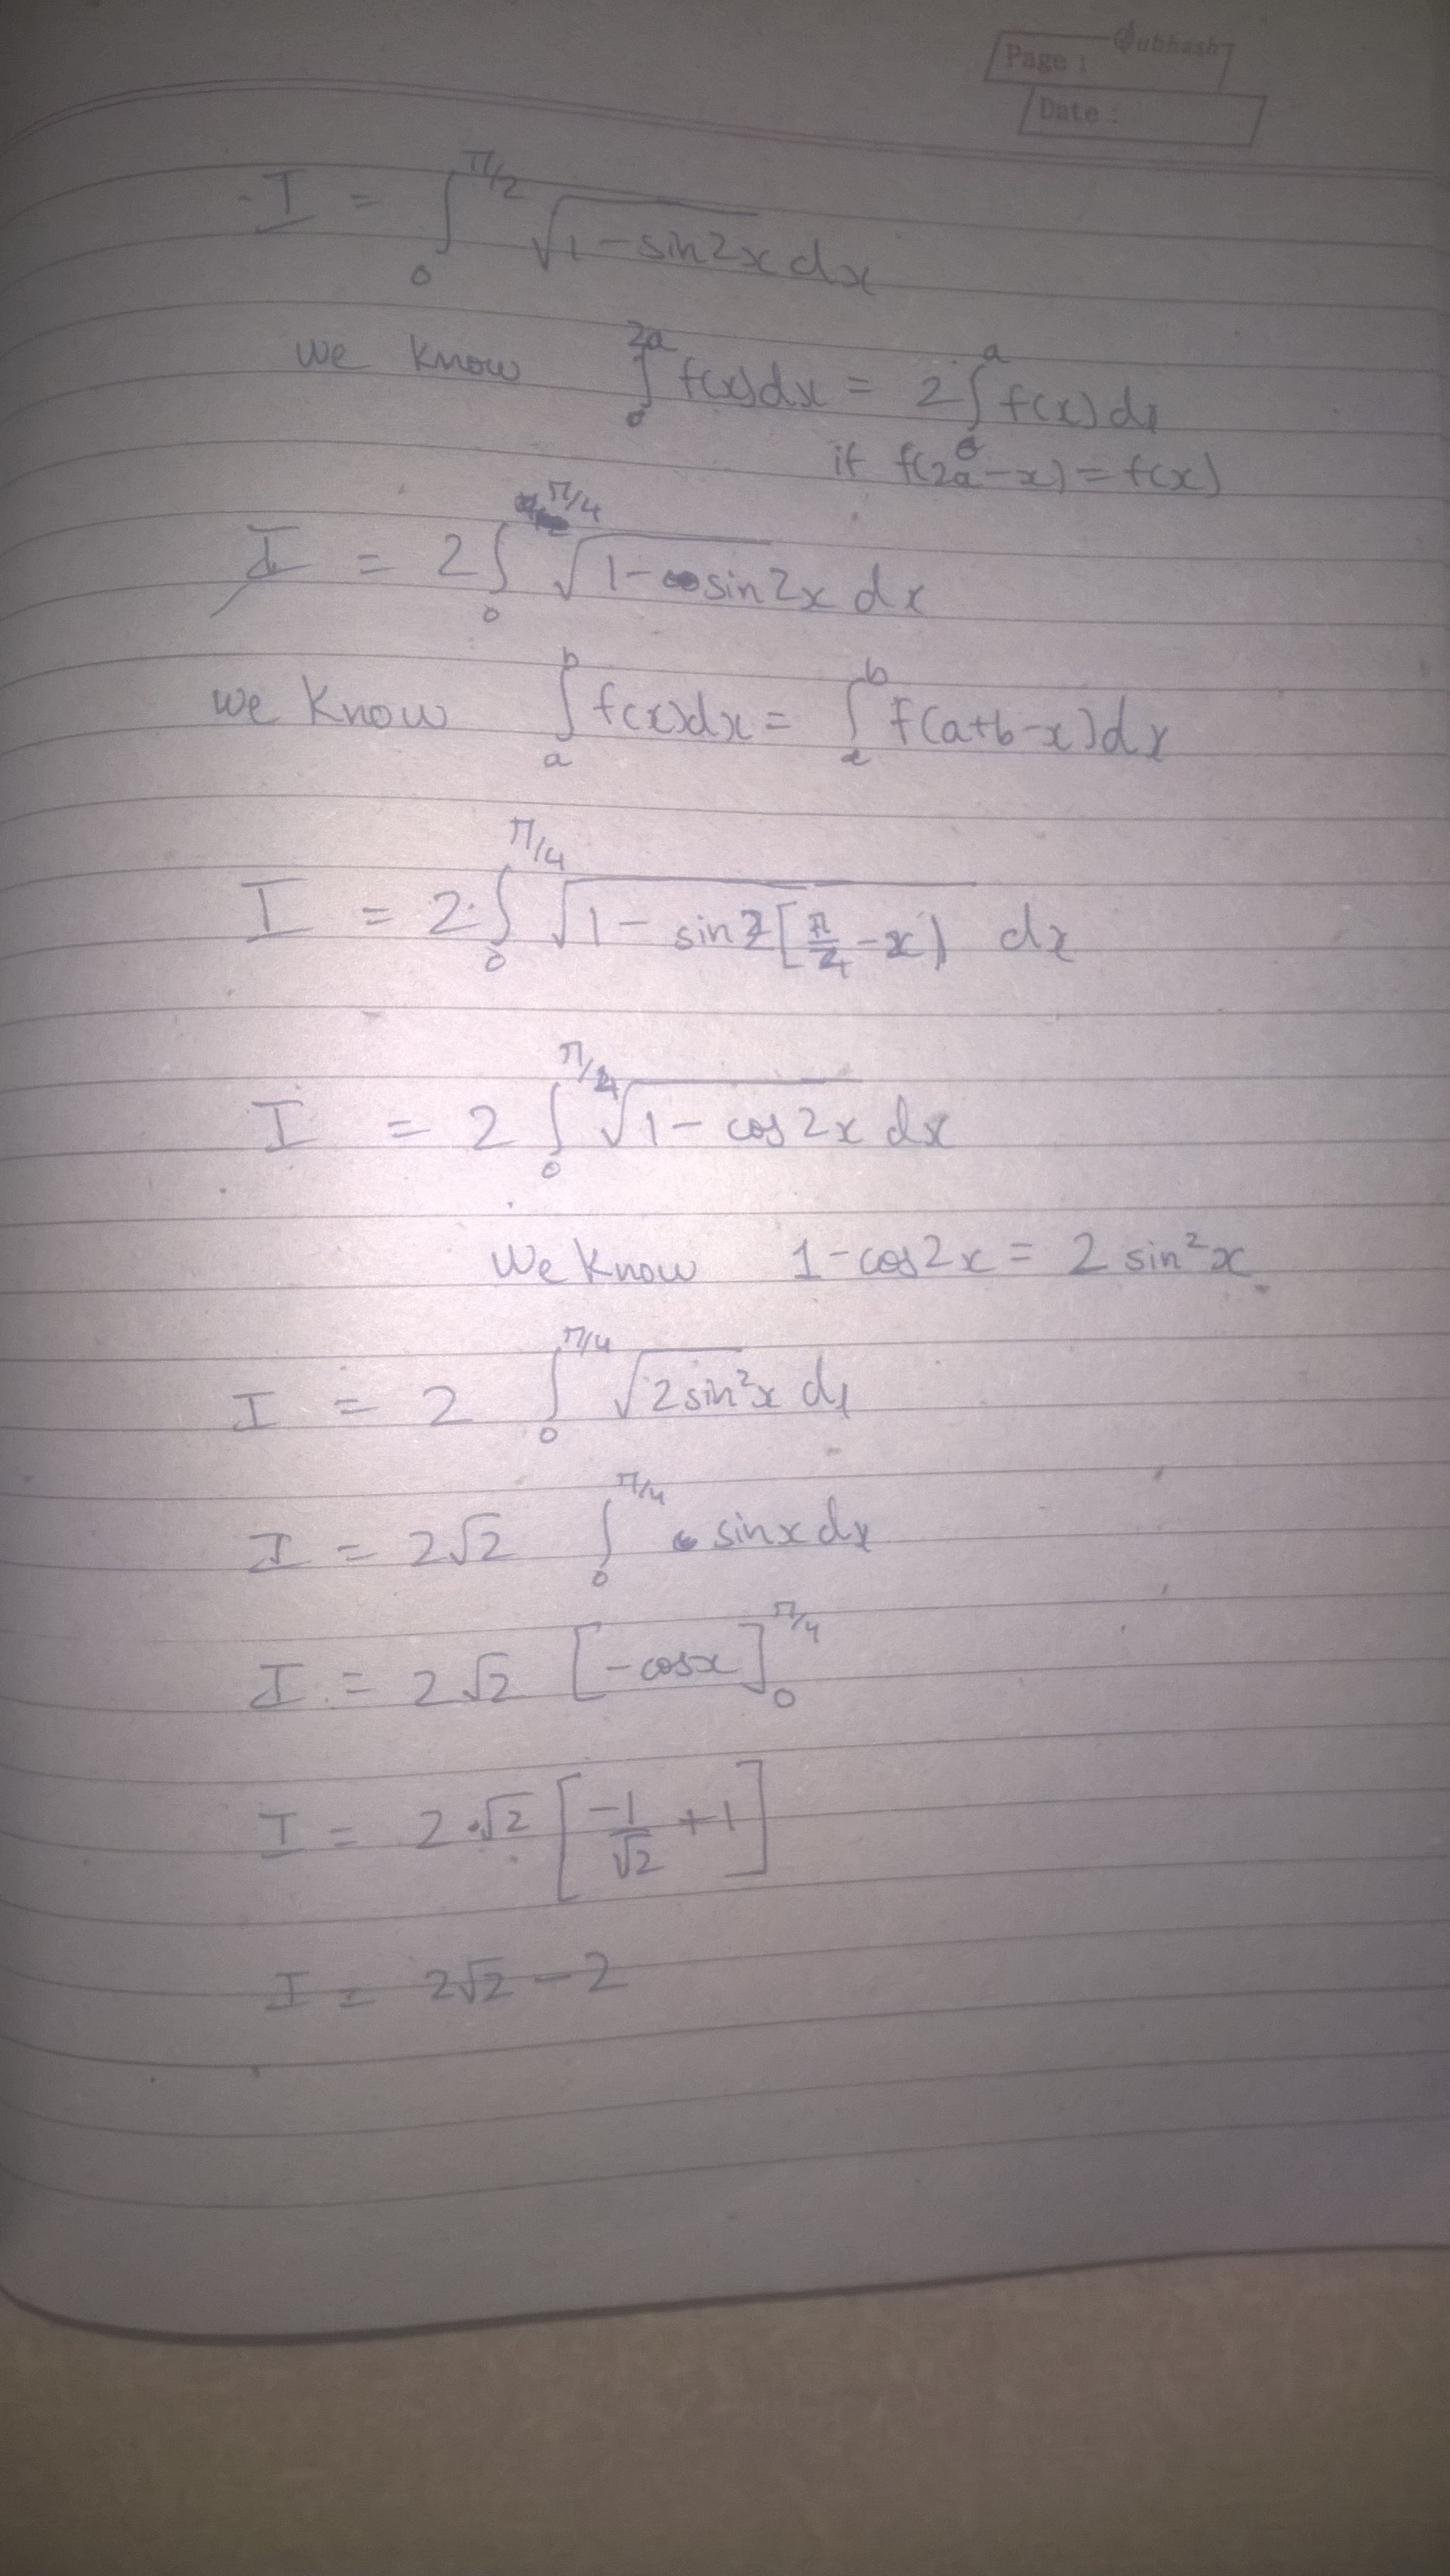 Subhash
Page :
Date :
I = ∫₀^{π/2} √(1 - sin2x) dx
we know ∫₀^{2a} f(x)dx = 2∫₀^{a} f(x)dx
if f(2a-x) = f(x)
I = 2∫₀^{π/4} √(1 - sin2x) dx
we know ∫ₐ^{b} f(x)dx = ∫ₐ^{b} f(a+b-x)dx
I = 2∫₀^{π/4} √(1 - sin2[π/4 - x)) dx
I = 2∫₀^{π/4} √(1 - cos2x) dx
We know 1-cos2x = 2 sin²x
I = 2 ∫₀^{π/4} √(2sin²x) dx
I = 2√2 ∫₀^{π/4} sinx dx
I = 2√2 [-cosx]₀^{π/4}
I = 2·√2 [-1/√2 + 1]
I = 2√2 - 2